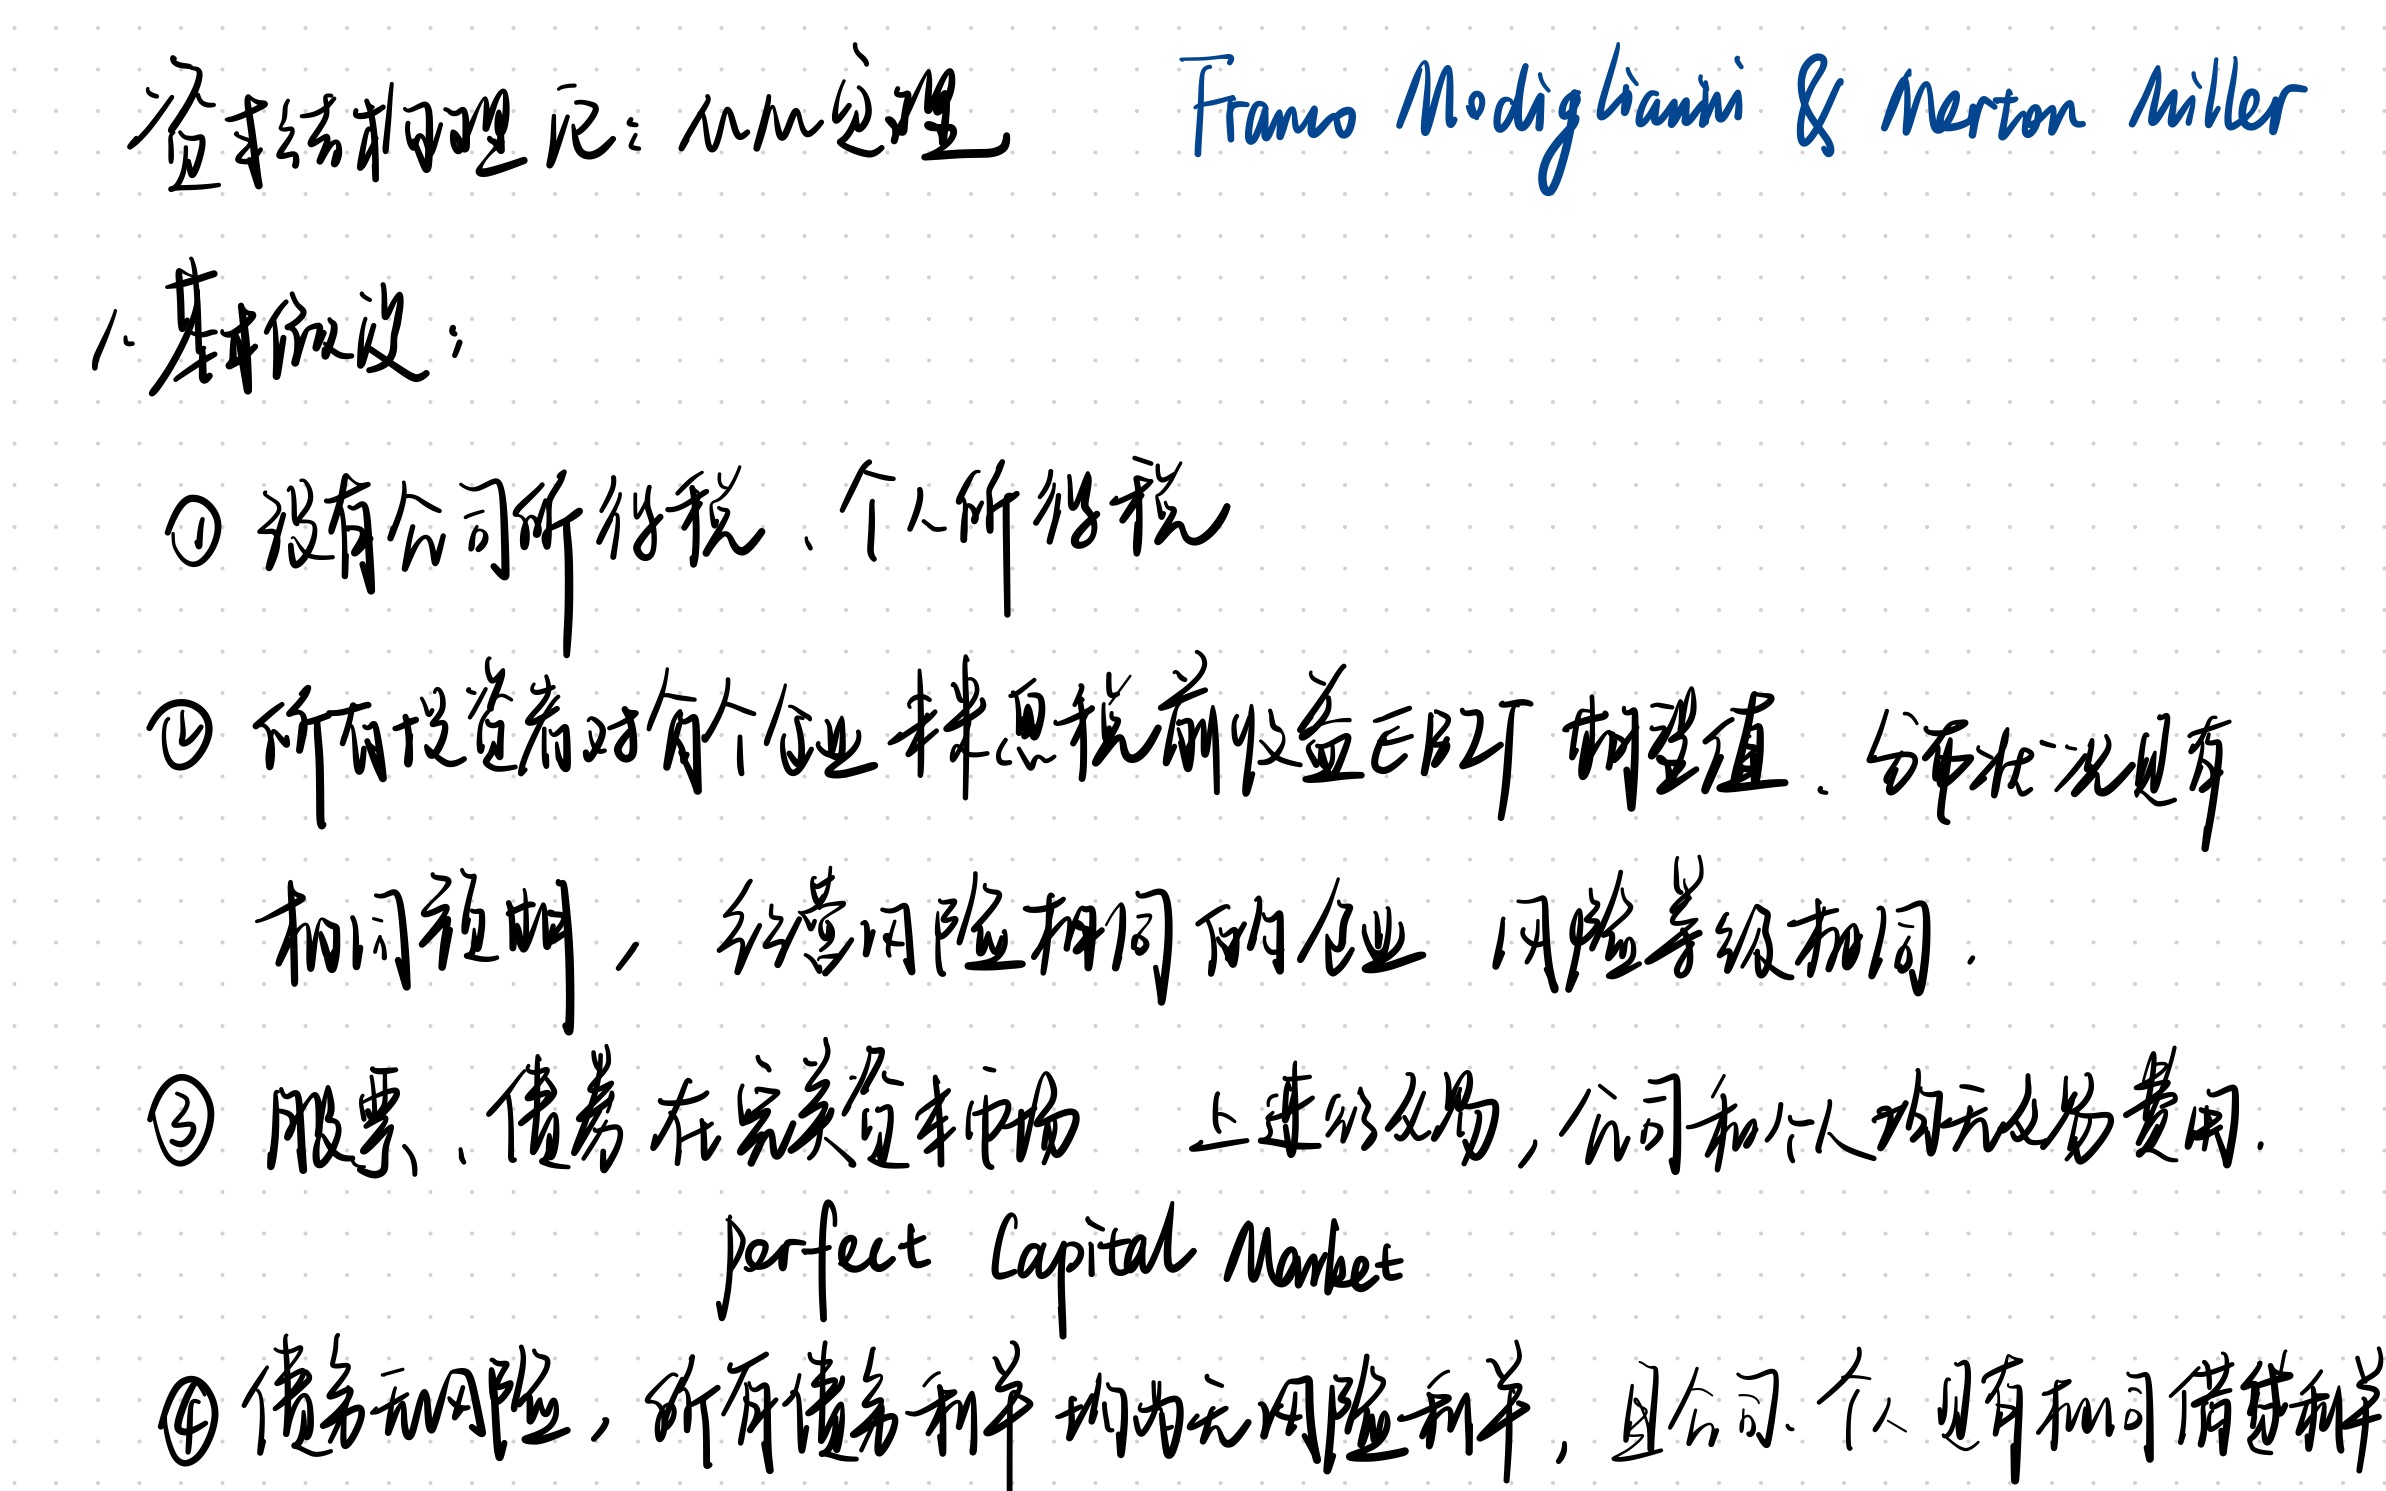 资本结构理论：MM定理 Franco Modigliani & Merton Miller
1. 基本假设：
① 没有公司所得税、个人所得税
② 所有投资者对各个企业未来息税前收益EBIT 期望值、分布状况具有
相同预期，经营风险相同的企业 风险等级相同．
③ 股票、债券在完美资本市场 上进行交易，公司和个人都无交易费用．
perfect Capital Market
④ 债务无风险，所有债务利率均为无风险利率，且公司、个人具有相同借款利率